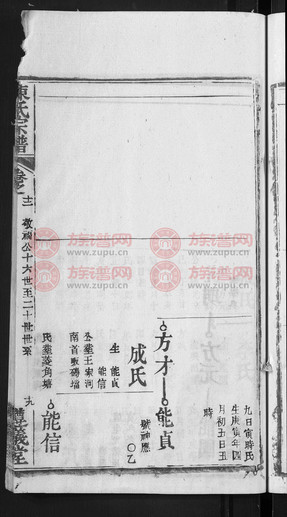 九日寅時氏
生庚寅年四
月初五日丑
時
方才 能貞
號神應
〇乙
成氏
生 能貞
能信
公葬王家河
南首
氏葬
能信
陳氏宗譜
卷之
十二
敬
公十六世至二十世世系
九
義莊
族谱网
www.zupu.cn
族谱网
www.zupu.cn
族谱网
www.zupu.cn
族谱网
www.zupu.cn